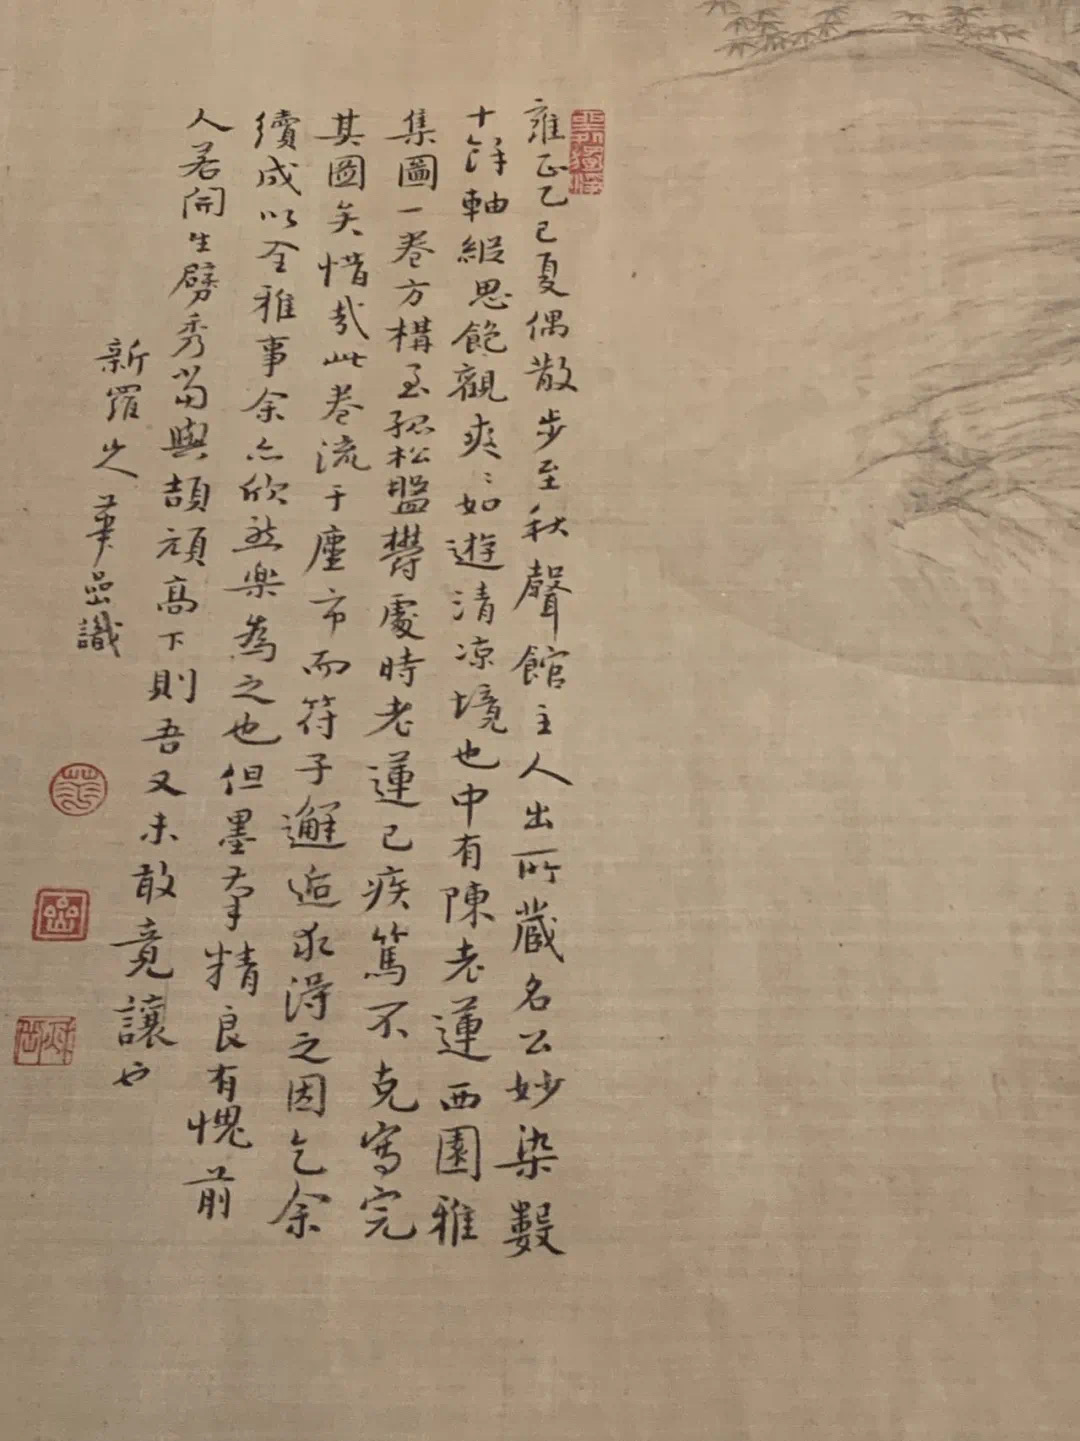 雍正乙巳夏偶散步至秋聲館主人出所藏名公妙染數
十餘軸縱思飽觀爽〻如遊清凉境也中有陳老蓮西園雅
集圖一卷方構至孤松盤鬱處時老蓮已疾篤不克寫完
其圖矣惜哉此卷流于廛市而符子邂逅求得之因乞余
續成以全雅事余亦欣然樂為之也但墨筆精良有愧前
人若開生劈秀當與頡頏高下則吾又未敢竟讓也
新羅山人華喦識